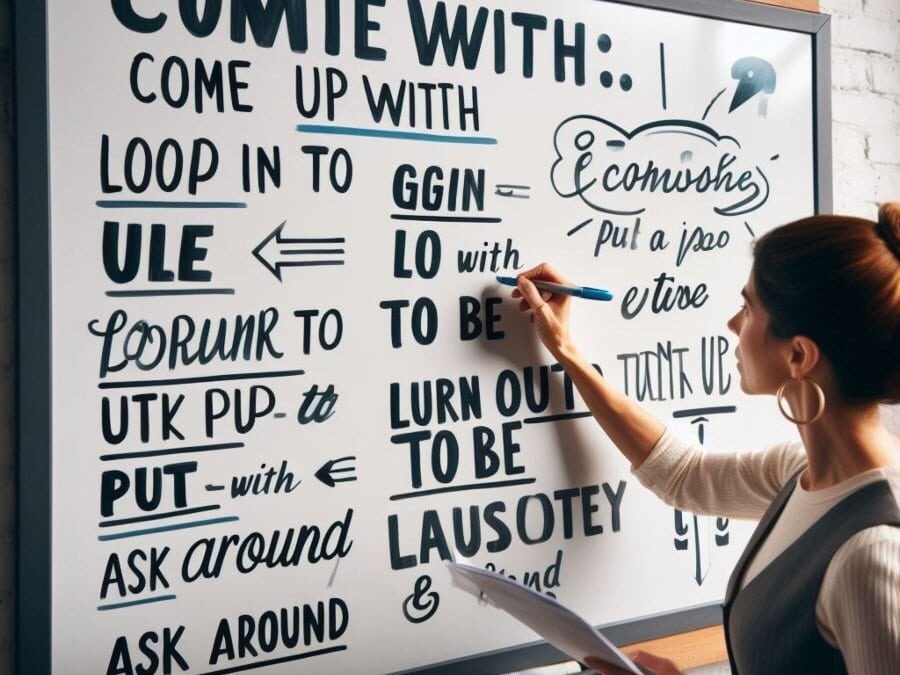 COMTE WITH:.
COME UP WITTH
LOOP IN TO
ULE
LOORUNR TO
UTK PUP-tt
PUT -with
ASK around
ASK AROUND
GGIN =
LO with
TO BE
LURN OUT
TO BE
LAUSOTEY
&
put a jpso
etise